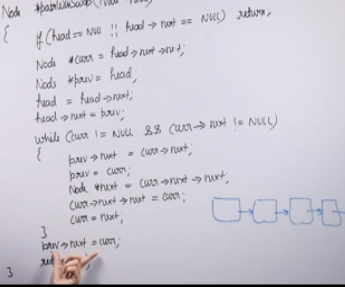 Node *pairwiseSwap(Node
{
if (head == NULL || head → next == NULL) return;
Node *curr = head → next → next;
Node *prev = head;
head = head → next;
head → next = prev;
while (curr != NULL && curr → next != NULL)
{
prev → next = curr → next;
prev = curr;
Node *next = curr → next → next;
curr → next → next = curr;
curr = next;
}
prev → next = curr;
}